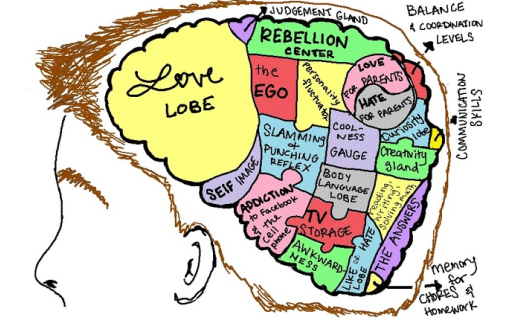 JUDGEMENT GLAND
BALANCE
& COORDINATION
LEVELS
REBELLION
CENTER
Love
LOBE
the
EGO
Personality
fluctuator
LOVE
FOR PARENTS
HATE
FOR PARENTS
COMMUNICATION
SKILLS
SLAMMING
&
PUNCHING
REFLEX
COOL-
NESS
GAUGE
Curiosity
lobe
Creativity
gland
SELF IMAGE
BODY
LANGUAGE
LOBE
reading,
writing,
solving math
ADDICTION
to Facebook
& the
cell
phone
TV
STORAGE
THE ANSWERS
AWKWARD-
NESS
LIKE OR HATE
LOBE
Memory
for
CHORES &
HOMEWORK